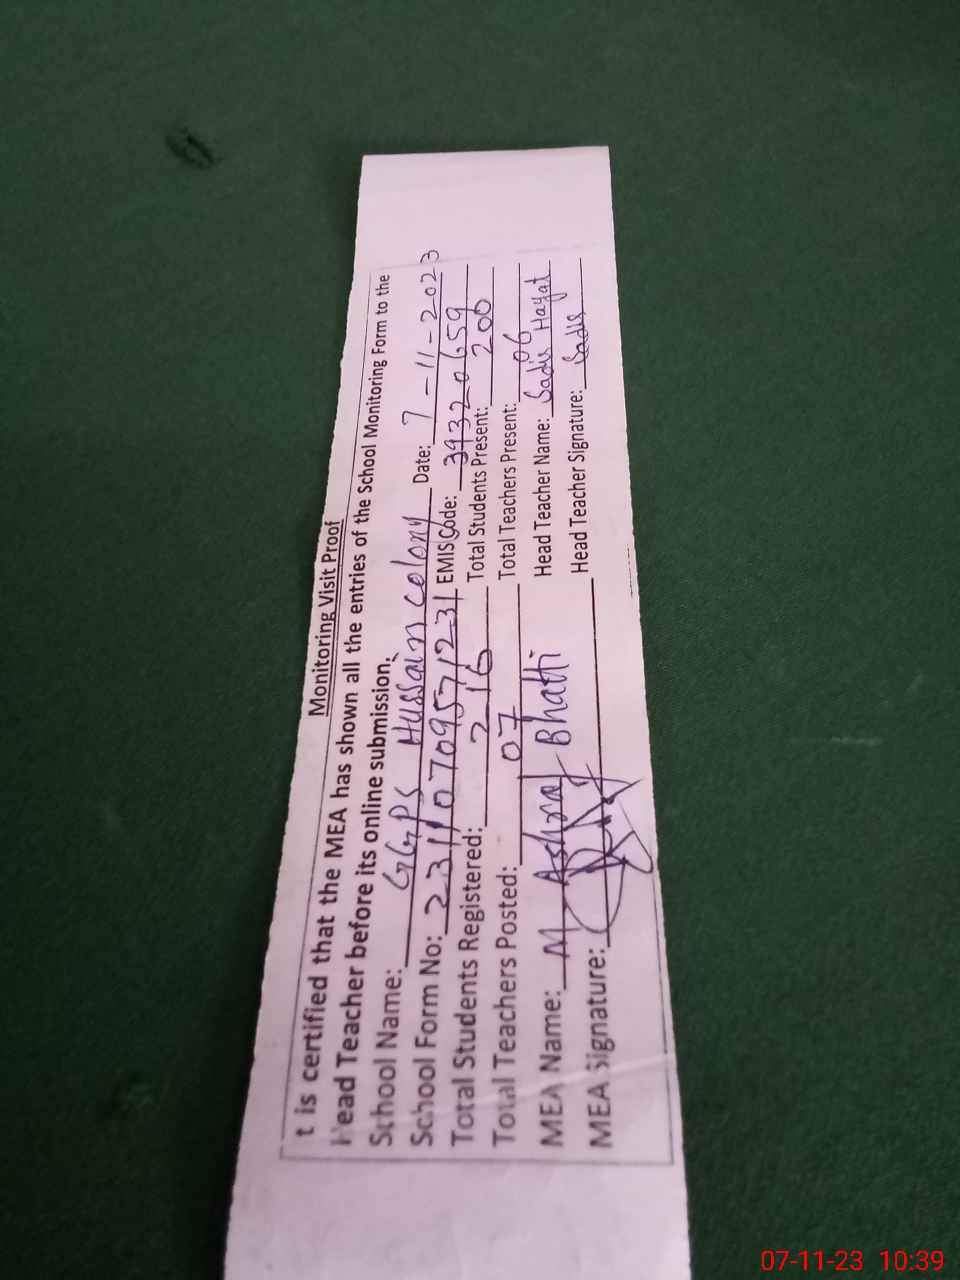 Monitoring Visit Proof
t is certified that the MEA has shown all the entries of the School Monitoring Form to the
Head Teacher before its online submission.
School Name: GGPS Hussain colony Date: 7-11-2023
School Form No: 23110709571231 EMIS Code: 39320659
Total Students Registered: 216 Total Students Present: 200
Total Teachers Posted: 07 Total Teachers Present: 06
MEA Name: M Ashraf Bhatti Head Teacher Name: Sadis Hayat
MEA Signature: Head Teacher Signature: Sadis
07-11-23 10:39